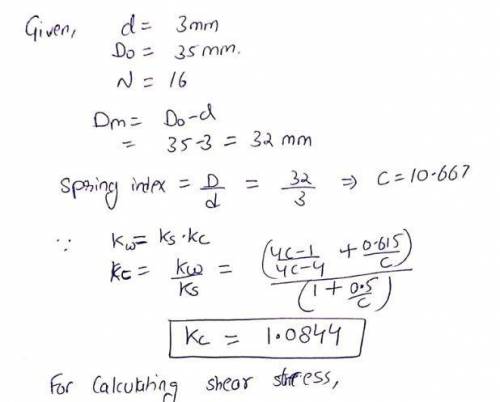 Given, d = 3mm
Do = 35 mm.
N = 16
Dm = Do-d
= 35-3 = 32 mm
Spring index = D/d = 32/3 ⇒ C = 10.667
∵ kw = ks·kc
kc = kw/ks = ((4C-1)/(4C-4) + 0.615/C)/(1 + 0.5/C)
kc = 1.0844
For Calculating shear stress,